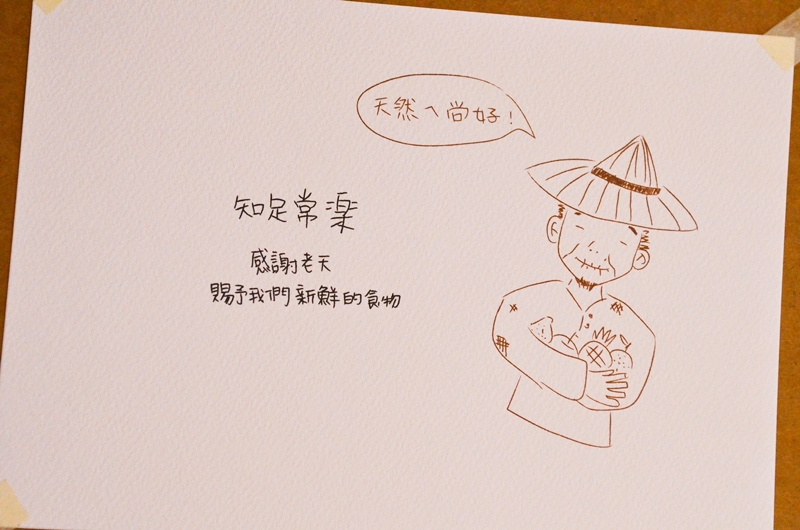 天然ㄟ尚好!
知足常楽
感謝老天
賜予我們新鮮的食物